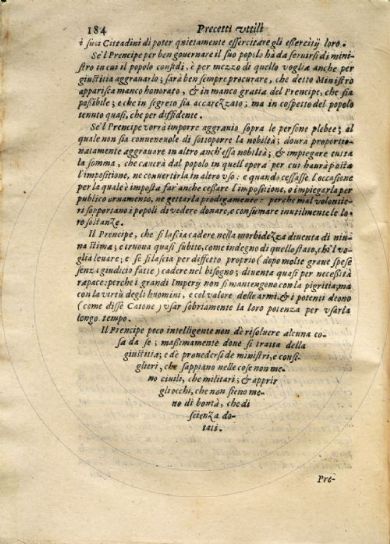 184 Precetti vtili
i suoi Cittadini di poter quietamente essercitare gli esercitij loro.
Se'l Prencipe per ben gouernare il suo popilo hà da seruirsi di mini-
stro in cui il popolo confidi, è per mezzo di quello voglia anche per
giustitia aggrauarlo; sarà ben sempre procurare, che detto Ministro
apparisca manco honorato, & in manco gratia del Prencipe, che sia
possibile; e che in segreto sia accarezzato; ma in cospetto del popolo
tenuto quasi, che per diffidente.
Se'l Prencipe vorrà imporre aggrauio sopra le persone plebee; al
quale non sia conueneuole di sottoporre la nobiltà; dourà proportio-
natamente aggrauare in altro anch'essa nobiltà; & impiegare tutta
la somma, che cauerà dal popolo in quell'opera per cui haurà posto
l'impositione, ne conuertirla in altro vso: e quando cessasse l'occasione
per la quale è imposta far'anche cessare l'impositione, o impiegarla per
publico ornamento, ne gettarla prodigamente: perche mal volontie-
ri sopportano i popoli di vedere donare, e consumare inutilmente le lo-
ro sostanze.
Il Prencipe, che si lascia cadere nella morbidezza diuenta di mi-
na stima; e truoua quasi subito, come indegno di quello stato, chi l vo-
glia leuare; e se si lascia per diffetto proprio (dopo molte grane spese
senza giudicio fatte) cadere nel bisogno; diuenta quasi per necessità
rapace: perche i grandi Imperij non si mantengono con la pigritia; ma
con la virtù degli huomini, e col valore delle armi: & i potenti deono
(come disse Catone) vsar sobriamente la loro potenza per vsarla
longo tempo.
Il Prencipe poco intelligente non dè risoluere alcuna co-
sa da se; massimamente doue si tratta della
giustitia; e dè prouedersi de ministri, e consi-
glieri, che sappiano nelle cose non me-
no ciuili, che militari; & aprir
gli occhi, che non sieno me-
no di bontà, che di
scienza do-
tati.
Pre-